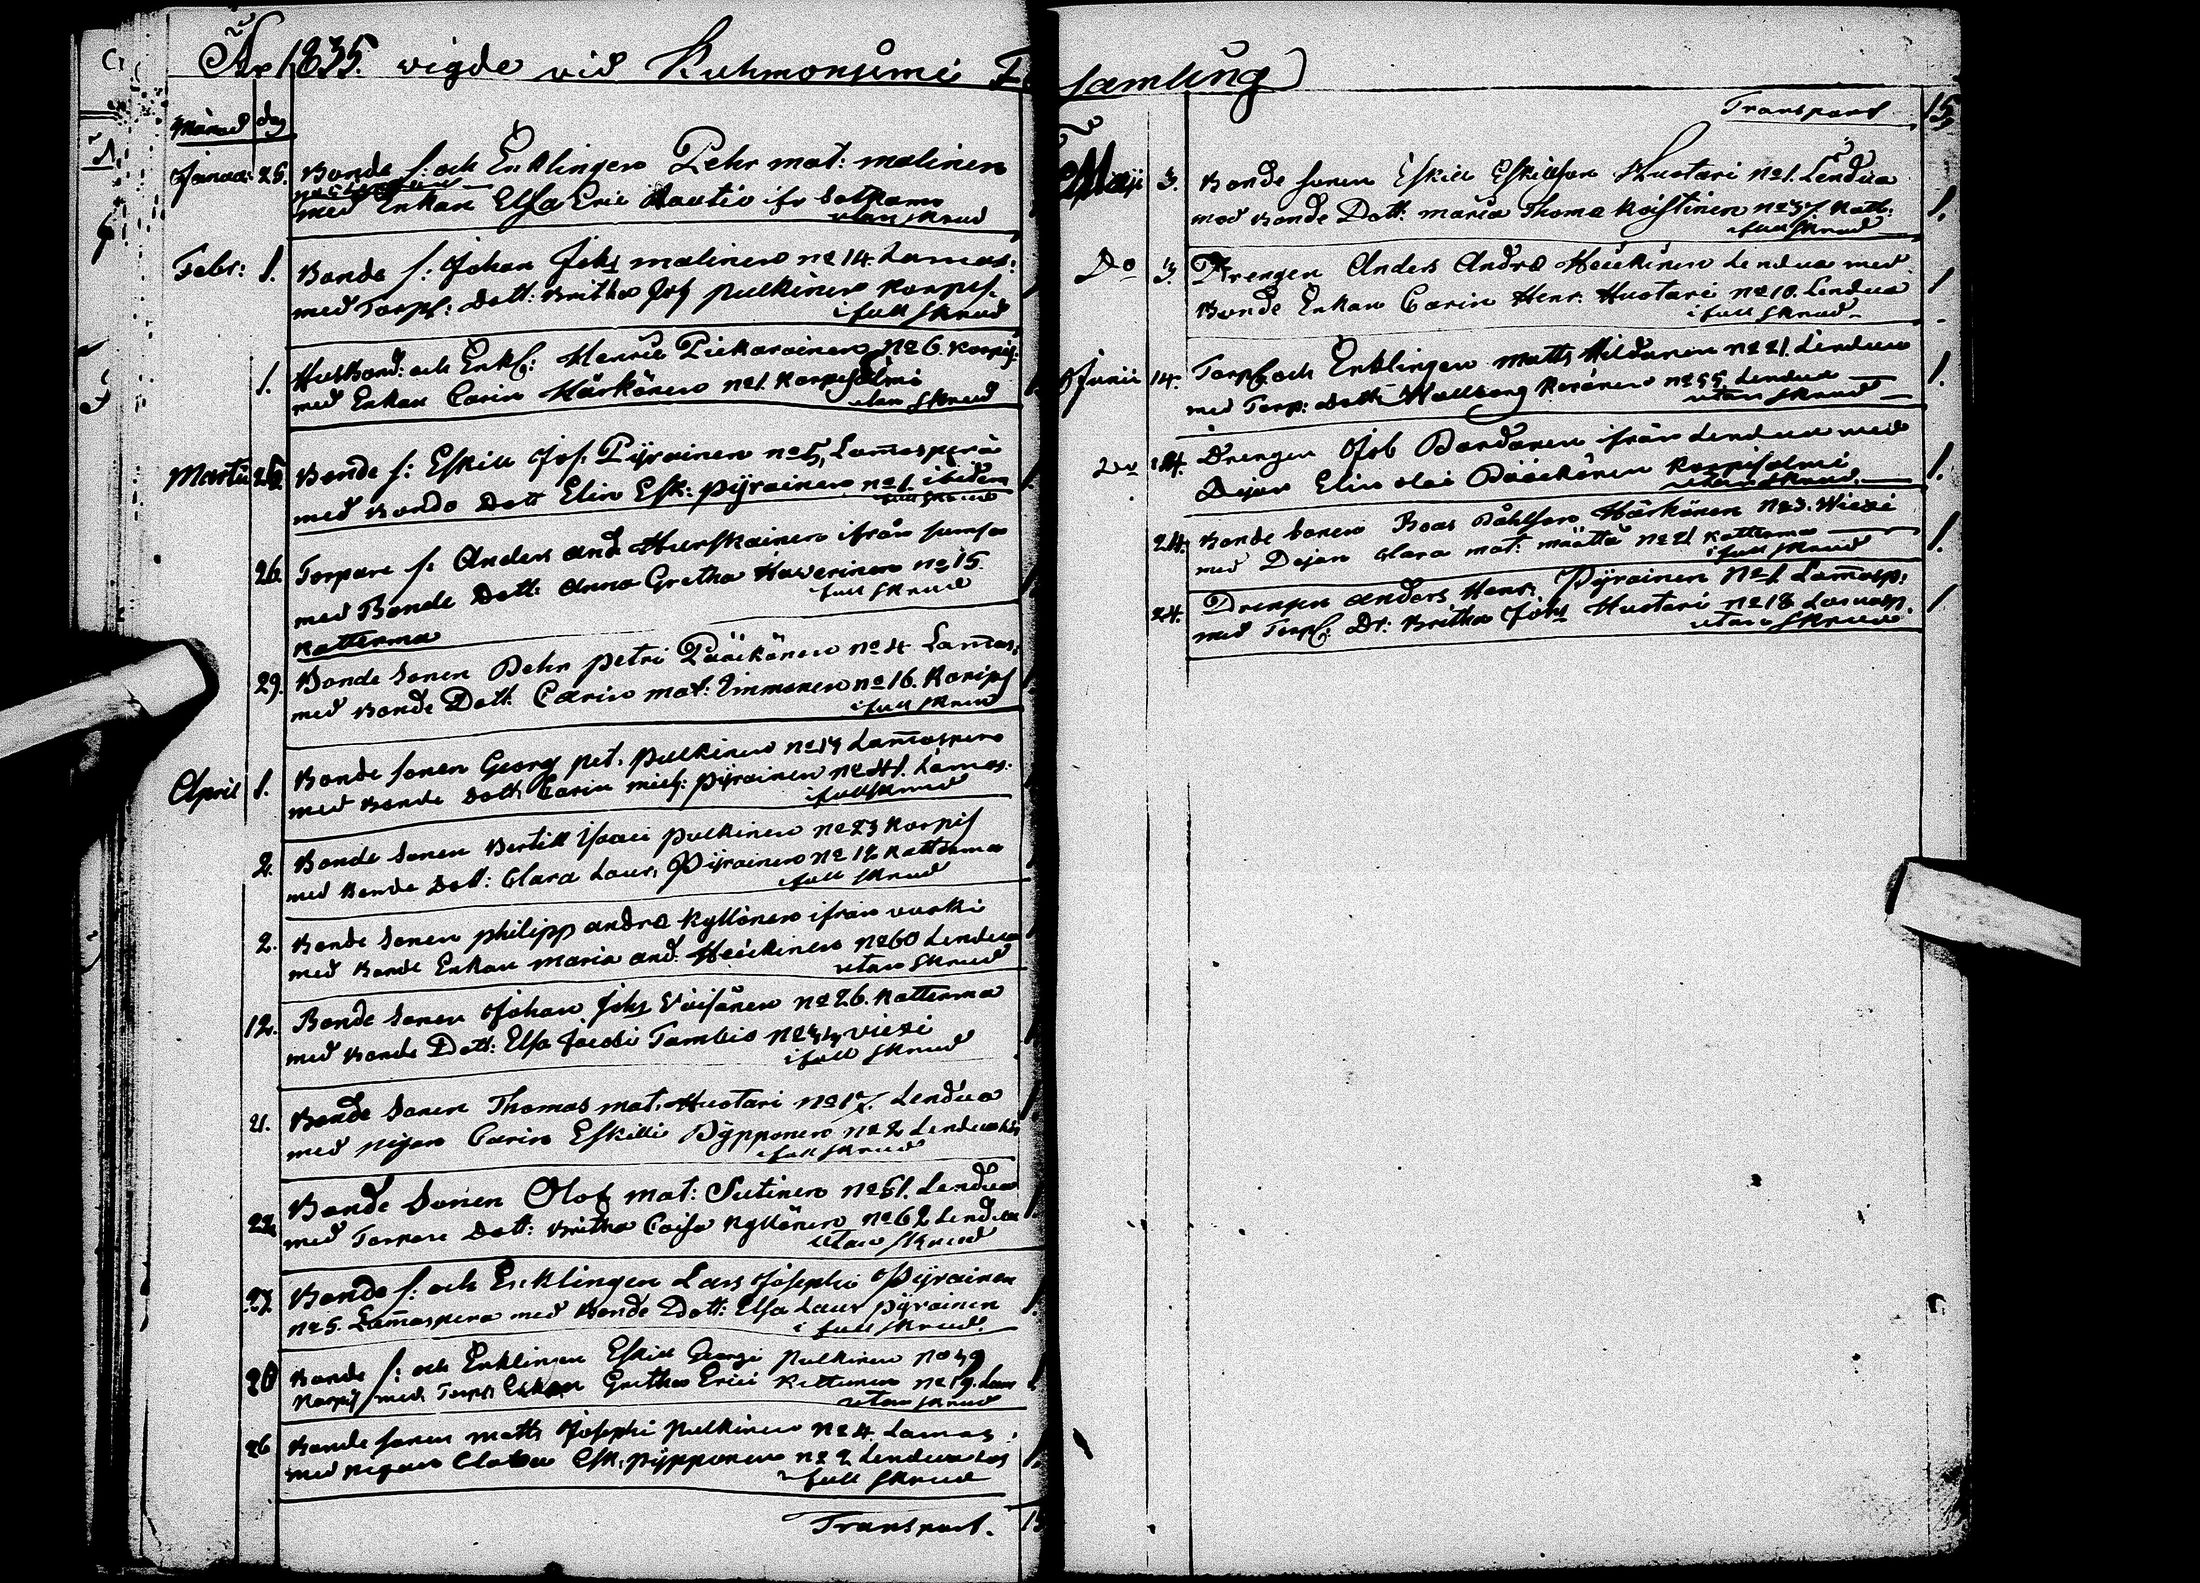 År 1835. vigde vid Kuhmoniemi Församling
Månad dag
Januar: 25. Bonde s: och Enklingen Pehr mat: Malinen
med Enkan Elsa Eric Rautio ifr Sotkamo
utan skrud
Febr: 1. Bonde s: Johan Johs Malinen No 14. Lamas:
med Torps: Dott: Britha Jos Pulkinen Korpis.
i full skrud
1. Husbond: och Enkl: Henric Piekarainen No 6. Korpis:
med Enkan Carin Härkönen No 1. Korpisalmi
utan skrud
Martii 25. Bonde s: Eskill Jos. Pyrainen No 5, Lamasperä
med Bonde Dott Elin Esk: Pyrainen No 1. ibidem
full skrud
26. Torpare s. Anders And Hurskainen ifrån
med Bonde Dott: Anna Gretha Haverinen No 15.
full skrud
Katterma
29. Bonde Sonen Pehr Petri Pääkönen No 4. Lamas:
med Bonde Dott. Carin mat: Immonen No 16. Korpis
i full skrud
April 1. Bonde sonen Georg pet. Pulkinen No 14 Lamaspera
med Bonde Dott Carin mich: Pyrainen No 41. Lamas:
i full skrud
2. Bonde Sonen Bertill Isaci Pulkinen No 23 Korpis
med Bonde Dott: Clara Laur. Pyrainen No 12 Katterma
i full skrud
2. Bonde Sonen Philipp Andre Kyllönen ifrån Vuoki
med Bonde Enkan Maria And: Heickinen No 60 Lendua
utan skrud
12. Bonde Sonen Johan Johs Väisänen No 26. Katterma
med Bonde Dott: Elsa Jacobi Tambio No 34 Viexi
i full skrud
21. Bonde Sonen Thomas mat. Huotari No 17. Lendua
med pigan Carin Eskilli Pypponen No 2 Lendua
i full skrud
22. Bonde Sonen Olof mat: Sutinen No 51. Lendua
med Torpare Dott: Britha Caisa Kyllönen No 62 Lendua
utan skrud
27. Bonde s: och Enklingen Lars Josephi Pyrainen
No 5. Lamaspera med Bonde Dott: Elsa Laur Pyrainen
i full skrud.
20 Bonde s: och Enklingen Eskill Georgi Pulkinen No 49
Korpis med Torps Enkan Gretha Erici Kettunen No 19. Lam
utan skrud
26 Bonde sonen matts Josephi Pulkinen No 4. Lamas:
med pigan Clara Esk. Pypponen No 2 Lendua
i full skrud
Transport. 15
Transport 15
Maji 3. Bonde sonen Eskill Eskilsson Huotari No 1. Lendua
med Bonde Dott: Maria Thoma Koistinen No 37. Katt: 1.
i full skrud
Do 3. Drengen Anders Andre Heickinen Lendua med
Bonde Enkan Carin Henr. Huotari No 10. Lendua 1
i full skrud
Junii 14. Torps och Enklingen matts Hildunen No 21. Lendua 1.
med Torp: Dott: Wallborg Keränen No 55. Lendua
utan skrud
Do 14. Drengen Job Bordanen ifrån Lendua med
Pigan Elin Olai Pääkönen Korpisalmi 1.
utan skrud
24. Bonde Sonen Boas Påhlson Härkönen No 3. Wiexi
med Pigan Clara mat: Määttä No 21 Katterma 1.
i full skrud
24. Drengen Anders Henr. Pyrainen No 1. Lamasp:
med Torps: Dr: Britha Johs Huotari No 18 Lamasp. 1
utan skrud